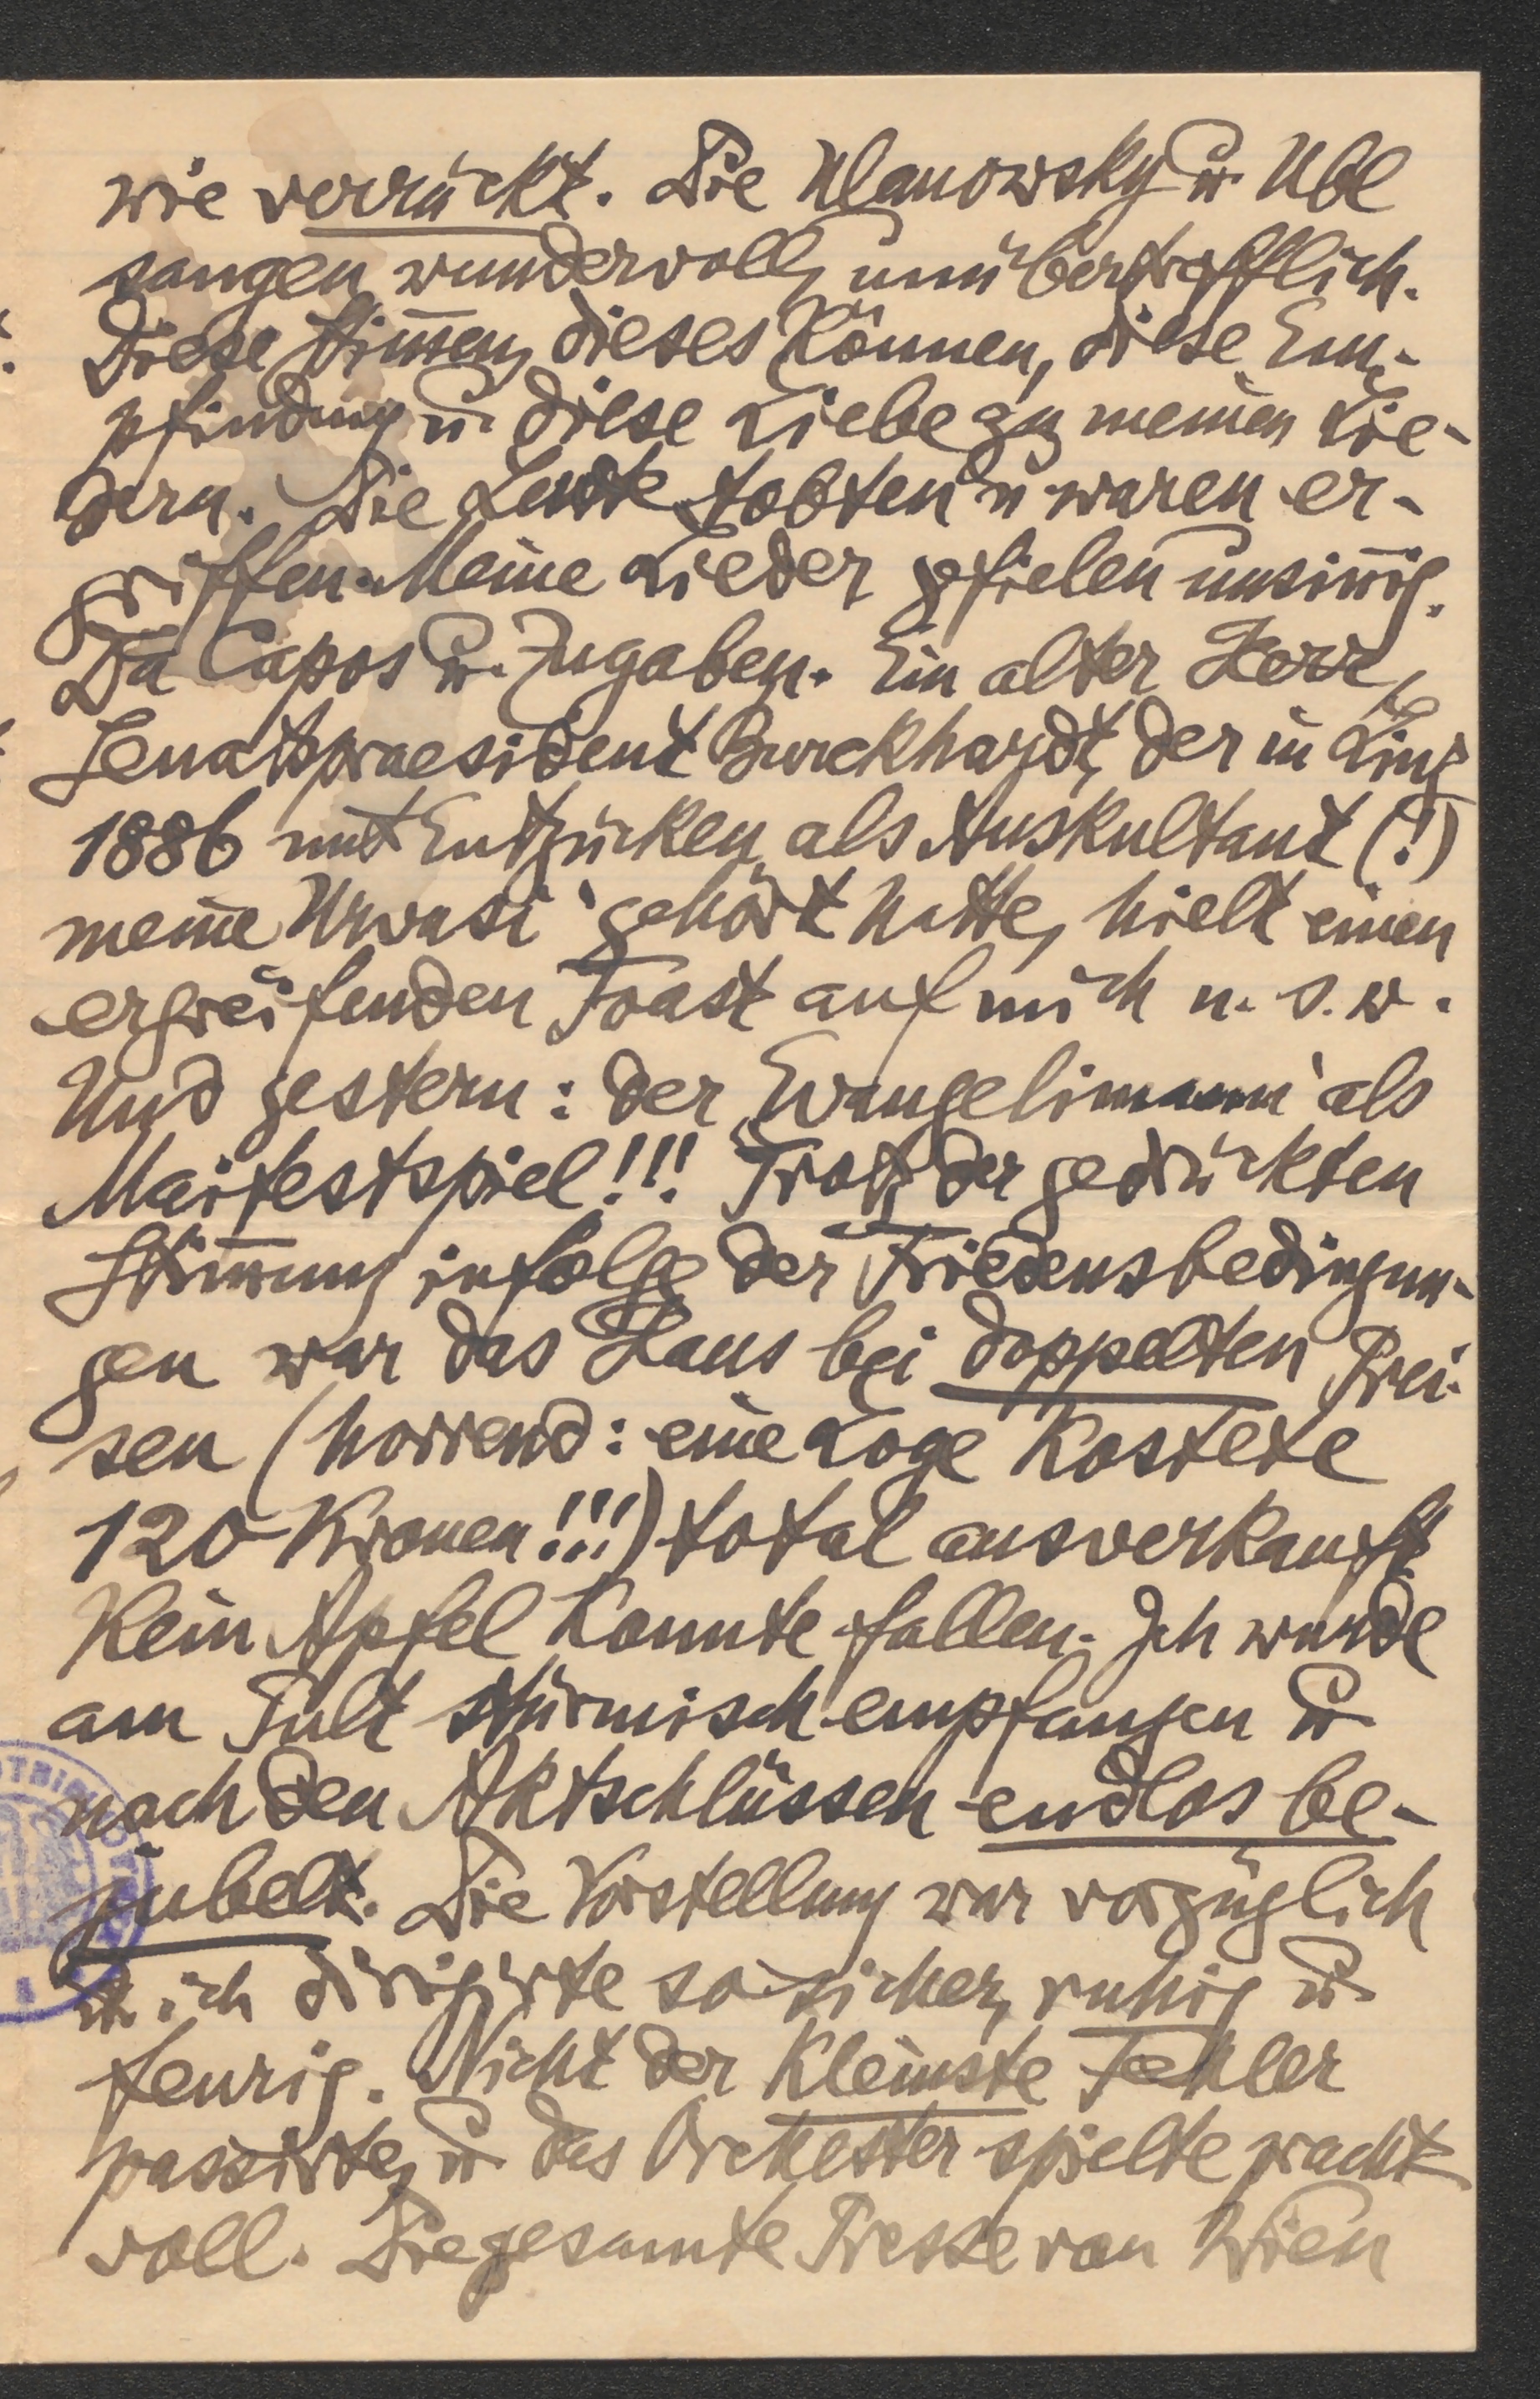 wie verrückt. Die Ulanowsky u. Ubl
sangen wundervoll, unübertrefflich.
Diese Stim̅en, dieses Können, diese Em-
pfindung u. diese Liebe zu meinen Lie-
dern. Die Leute tobten u. waren er-
griffen. Meine Lieder gefielen unsin̅ig.
Da Capos u. Zugaben. Ein alter Herr,
Senatspraesident Burckhardt, der in Linz
1886 mit Entzücken als Auskultant (!)
meine „Urvasi“ gehört hatte, hielt einen
ergreifenden Toast auf mich u. s. w.
Und gestern: der „Evangelimann“ als
Maifestspiel!!! Trotz der gedrückten
Stim̅ung infolge der Friedensbedingun-
gen war das Haus bei doppelten Prei-
sen (horrend: eine Loge kostete
120 Kronen!!!) total ausverkauft.
Kein Apfel konnte fallen. Ich wurde
am Pult stürmisch empfangen u.
nach den Aktschlüssen endlos be-
jubelt. Die Vorstellung war vorzüglich
u. ich dirigirte so sicher, ruhig u.
feurig. Nicht der kleinste Fehler
passirte, u. das Orchester spielte pracht
voll. Die gesamte Presse von Wien